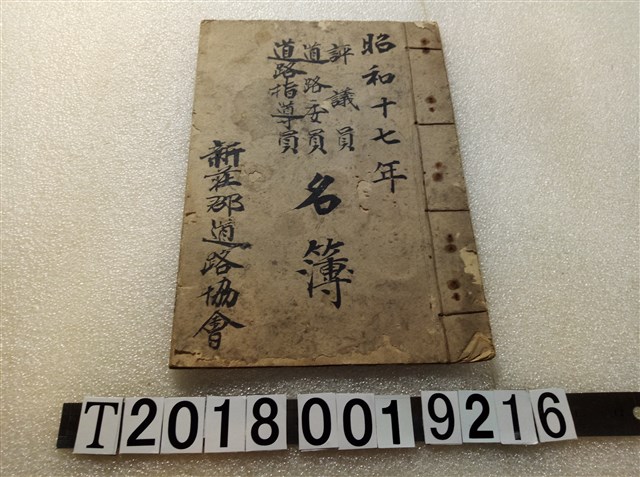 昭和十七年
評議員
道路委員
道路指導員
名簿
新莊郡道路協會
T20180019216